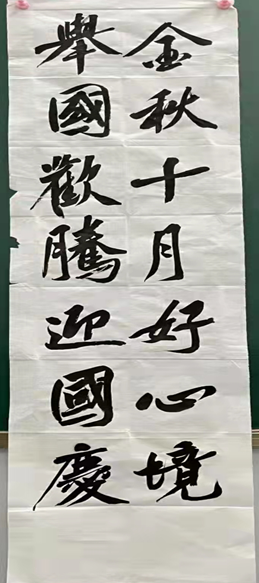 金秋十月好心境
舉國歡騰迎國慶